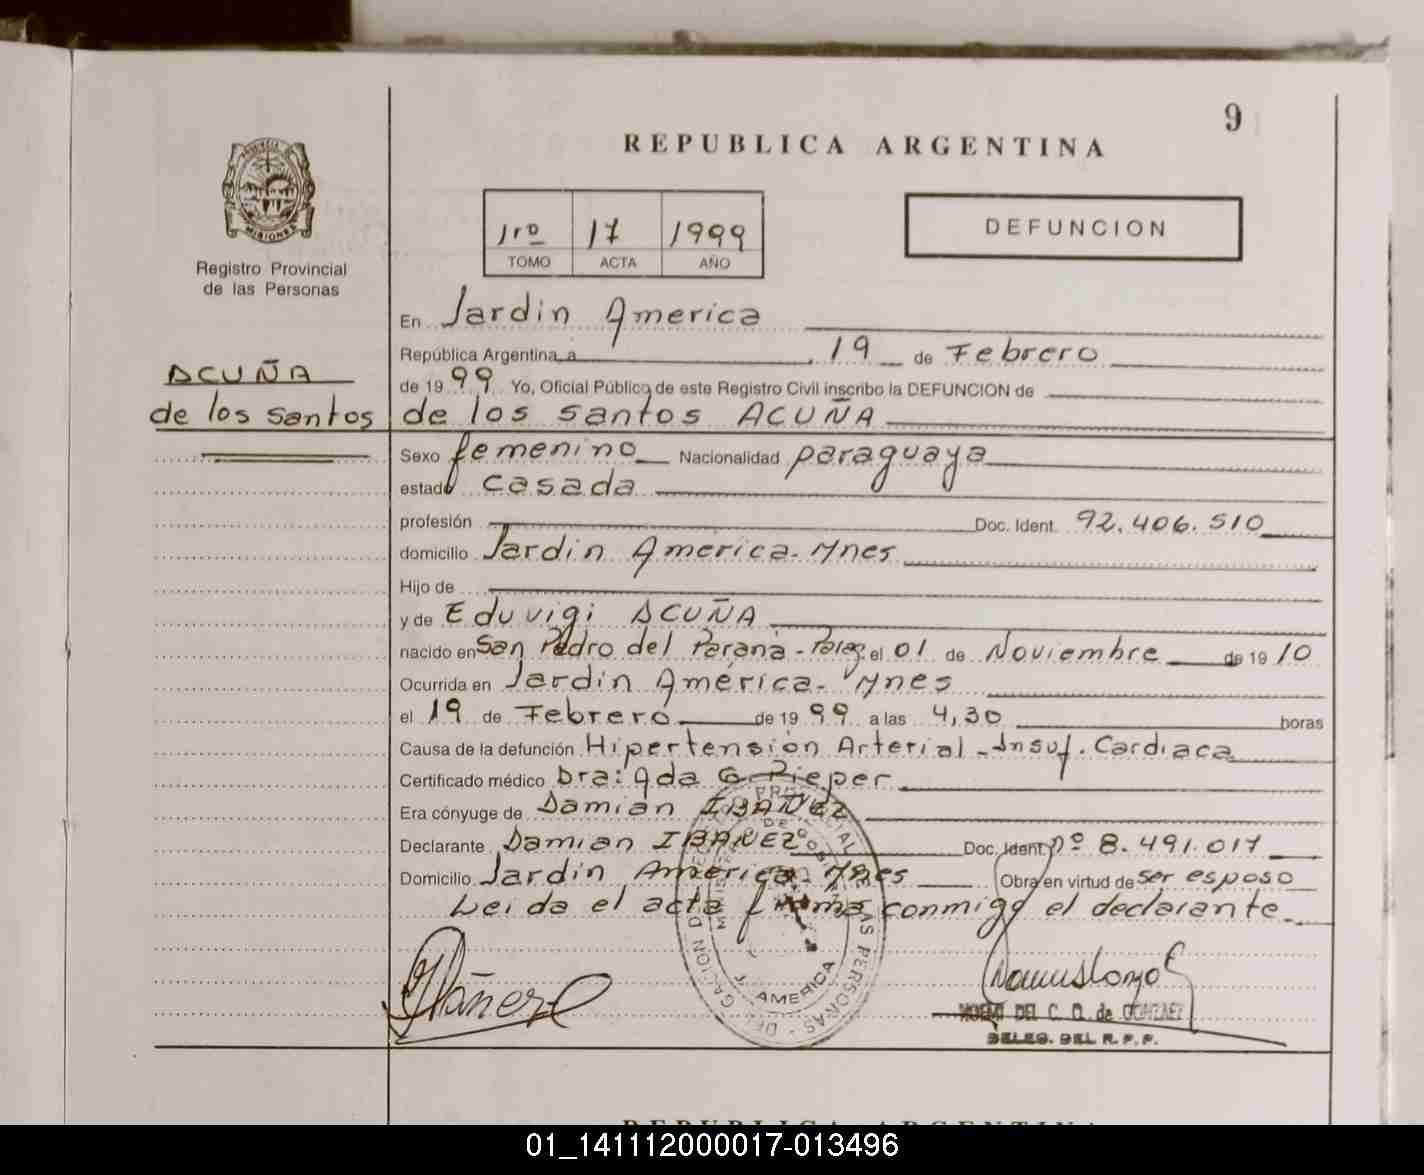 9
REPUBLICA ARGENTINA
PROVINCIA DE
MISIONES
Registro Provincial
de las Personas
1ro 17 1999
TOMO ACTA AÑO
DEFUNCION
ACUÑA
de los santos
En Jardin America
República Argentina, a 19 de Febrero
de 19 99 Yo, Oficial Público de este Registro Civil inscribo la DEFUNCION de
de los santos ACUÑA
Sexo femenino Nacionalidad paraguaya
estado casada
profesión Doc. Ident. 92.406.510
domicilio Jardin America - Mnes
Hijo de
y de Eduvigi ACUÑA
nacido en San Pedro del Paraná - Parag. el 01 de Noviembre de 19 10
Ocurrida en Jardin América - Mnes
el 19 de Febrero de 19 99 a las 4,30 horas
Causa de la defunción Hipertensión Arterial - Insuf. Cardiaca
Certificado médico Dra: Ada G. Pieper
Era cónyuge de Damian IBAÑEZ
Declarante Damian IBAÑEZ Doc. Ident. nº 8.491.017
Domicilio Jardin America - Mnes Obra en virtud de ser esposo
Leida el acta firma conmigo el declarante.
J. AMERICA
NOEMI DEL C. D. de GONZALEZ
DELEG. DEL R.P.P.
REPUBLICA ARGENTINA
01_141112000017-013496